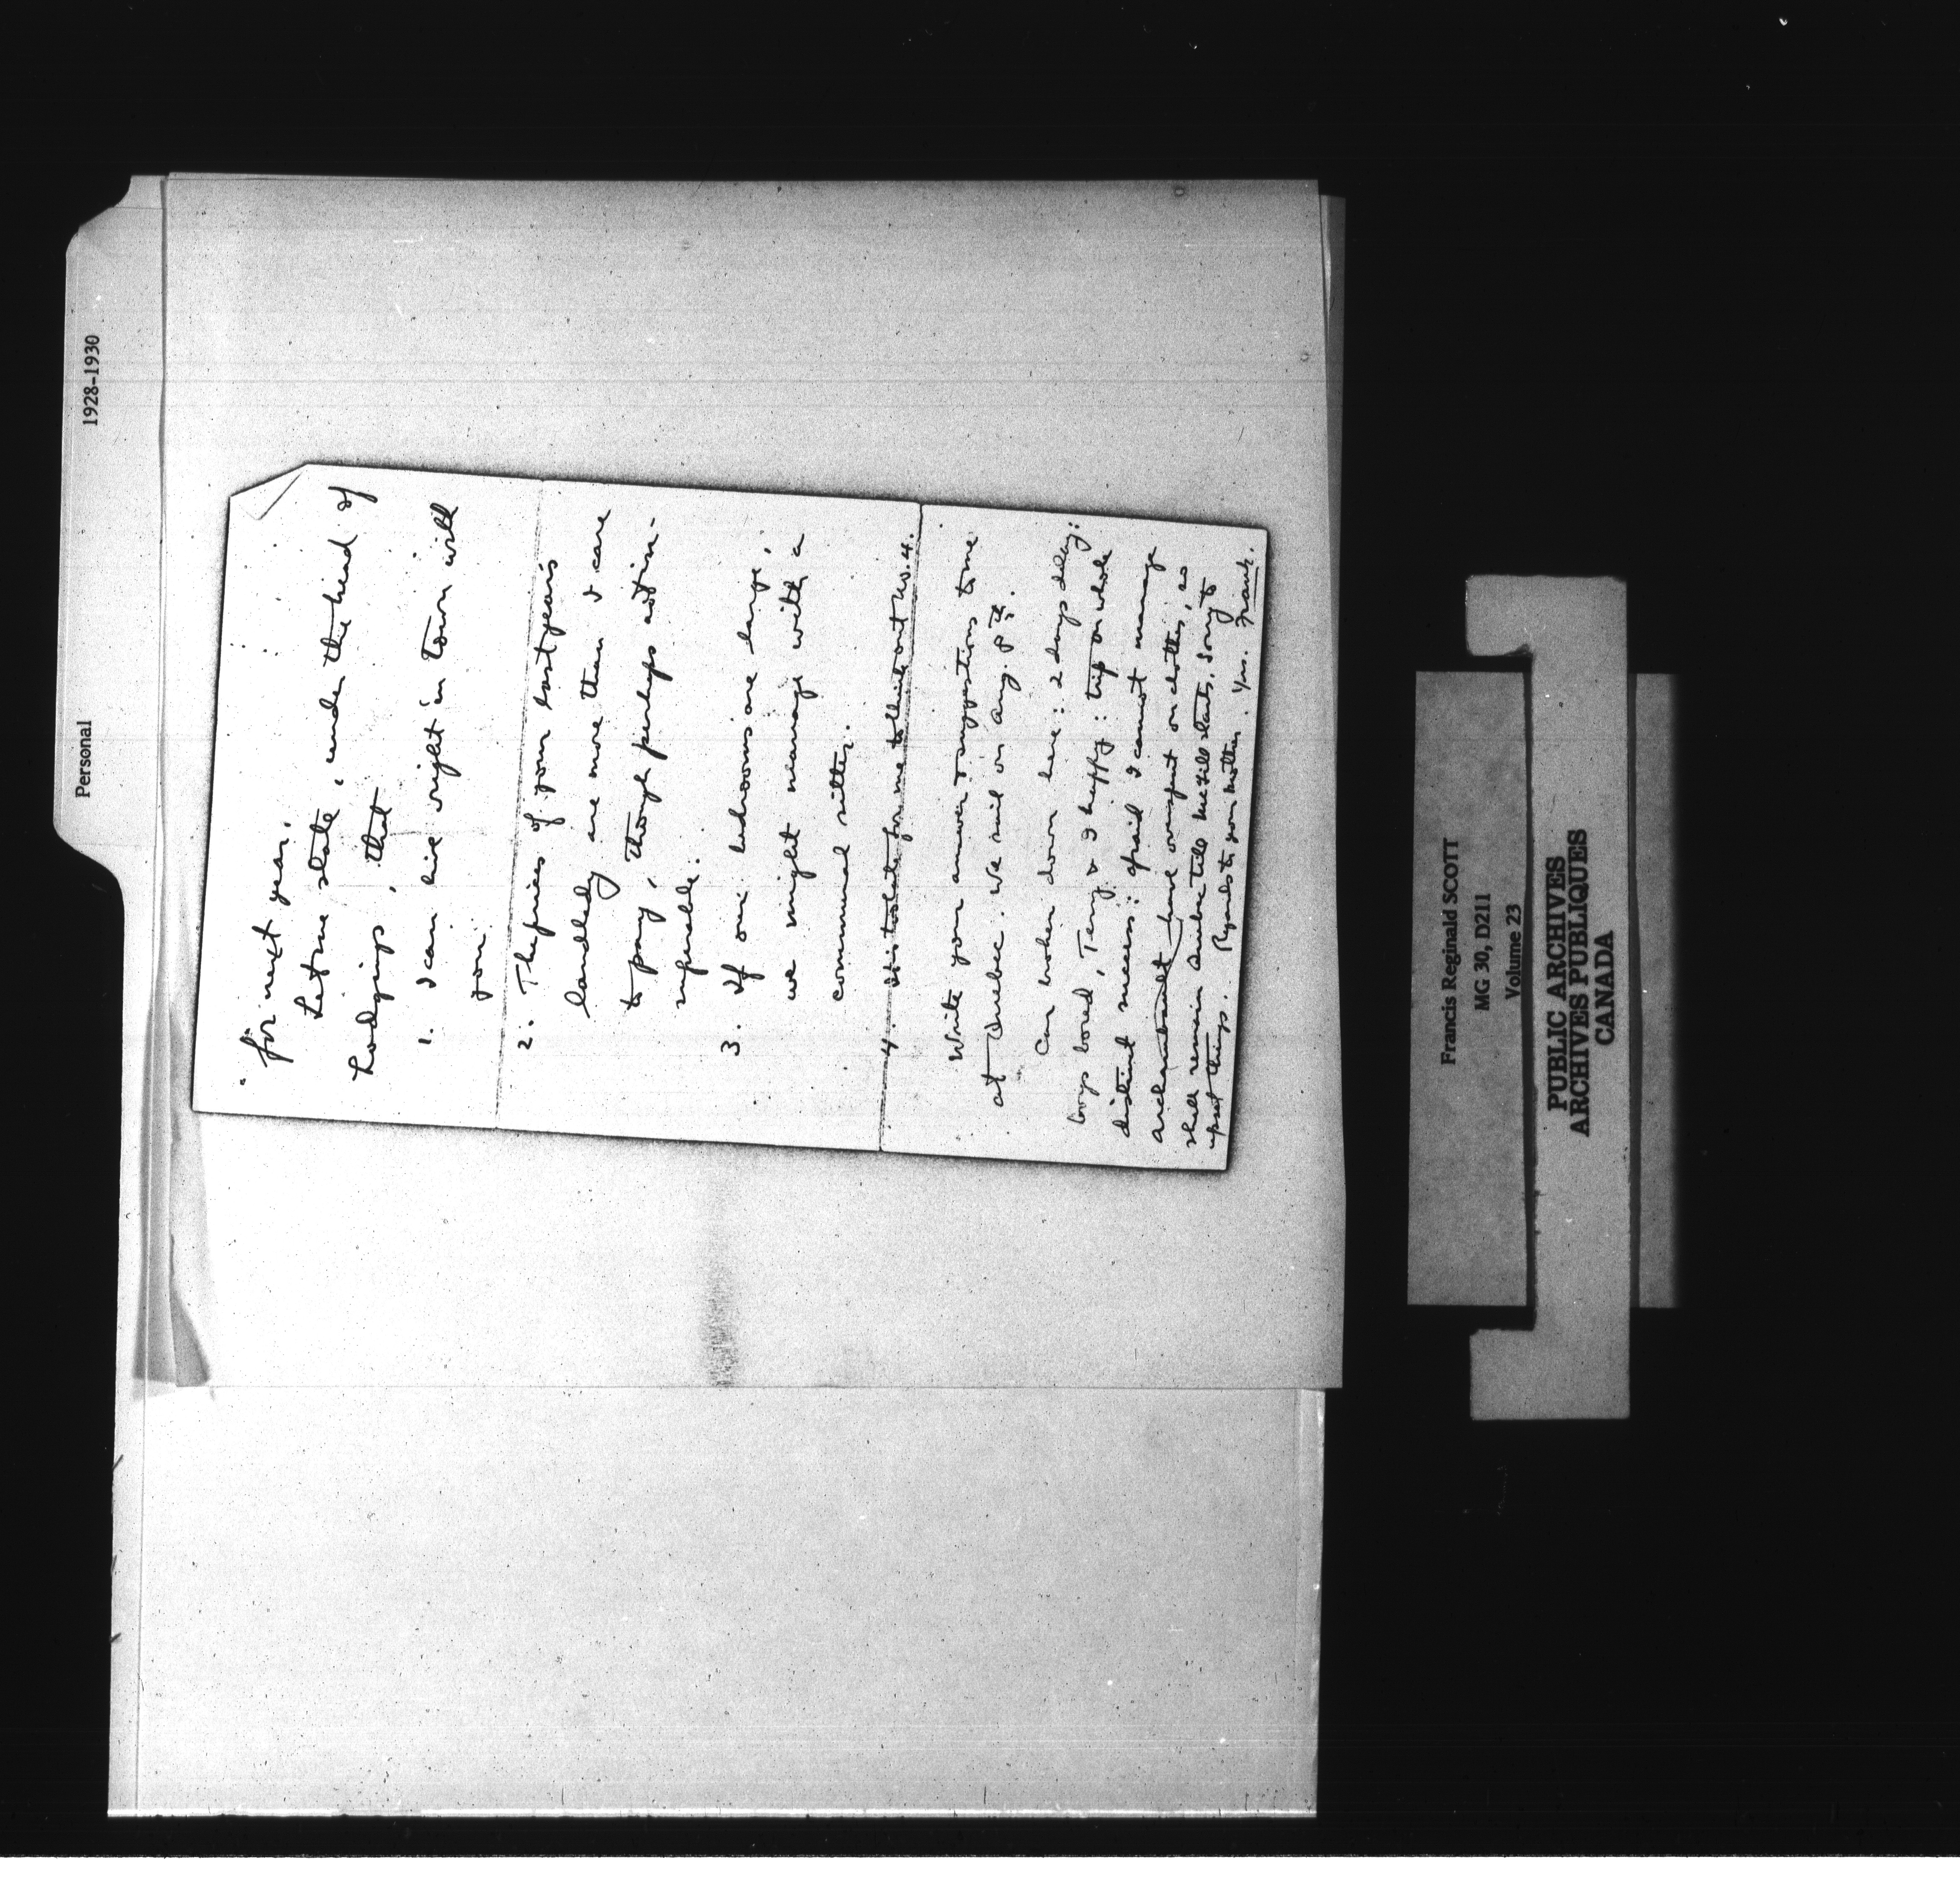 Personal
1928-1930
for next year.
Let me state, under the head of
Lodgings, that
1. I can live right in town with
you.
2. The prices of your last year's
landlady are more than I care
to pay, though perhaps not in-
superable.
3. If our bedrooms are large,
we might manage with a
communal sitter.
4. It is too late for me to think out No. 4.
Write your answer & suggestions to me
at Quebec. We sail on Aug. 8th.
Car broken down here: 2 days delay:
boys bored, Terry & I happy: trip on whole
distinct success: afraid I cannot manage
have overspent on clothes, so
shall remain Quebec till McGill starts. Sorry to
upset things. Regards to your mother. Yrs. Frank.
Francis Reginald SCOTT
MG 30, D211
Volume 23
PUBLIC ARCHIVES
ARCHIVES PUBLIQUES
CANADA